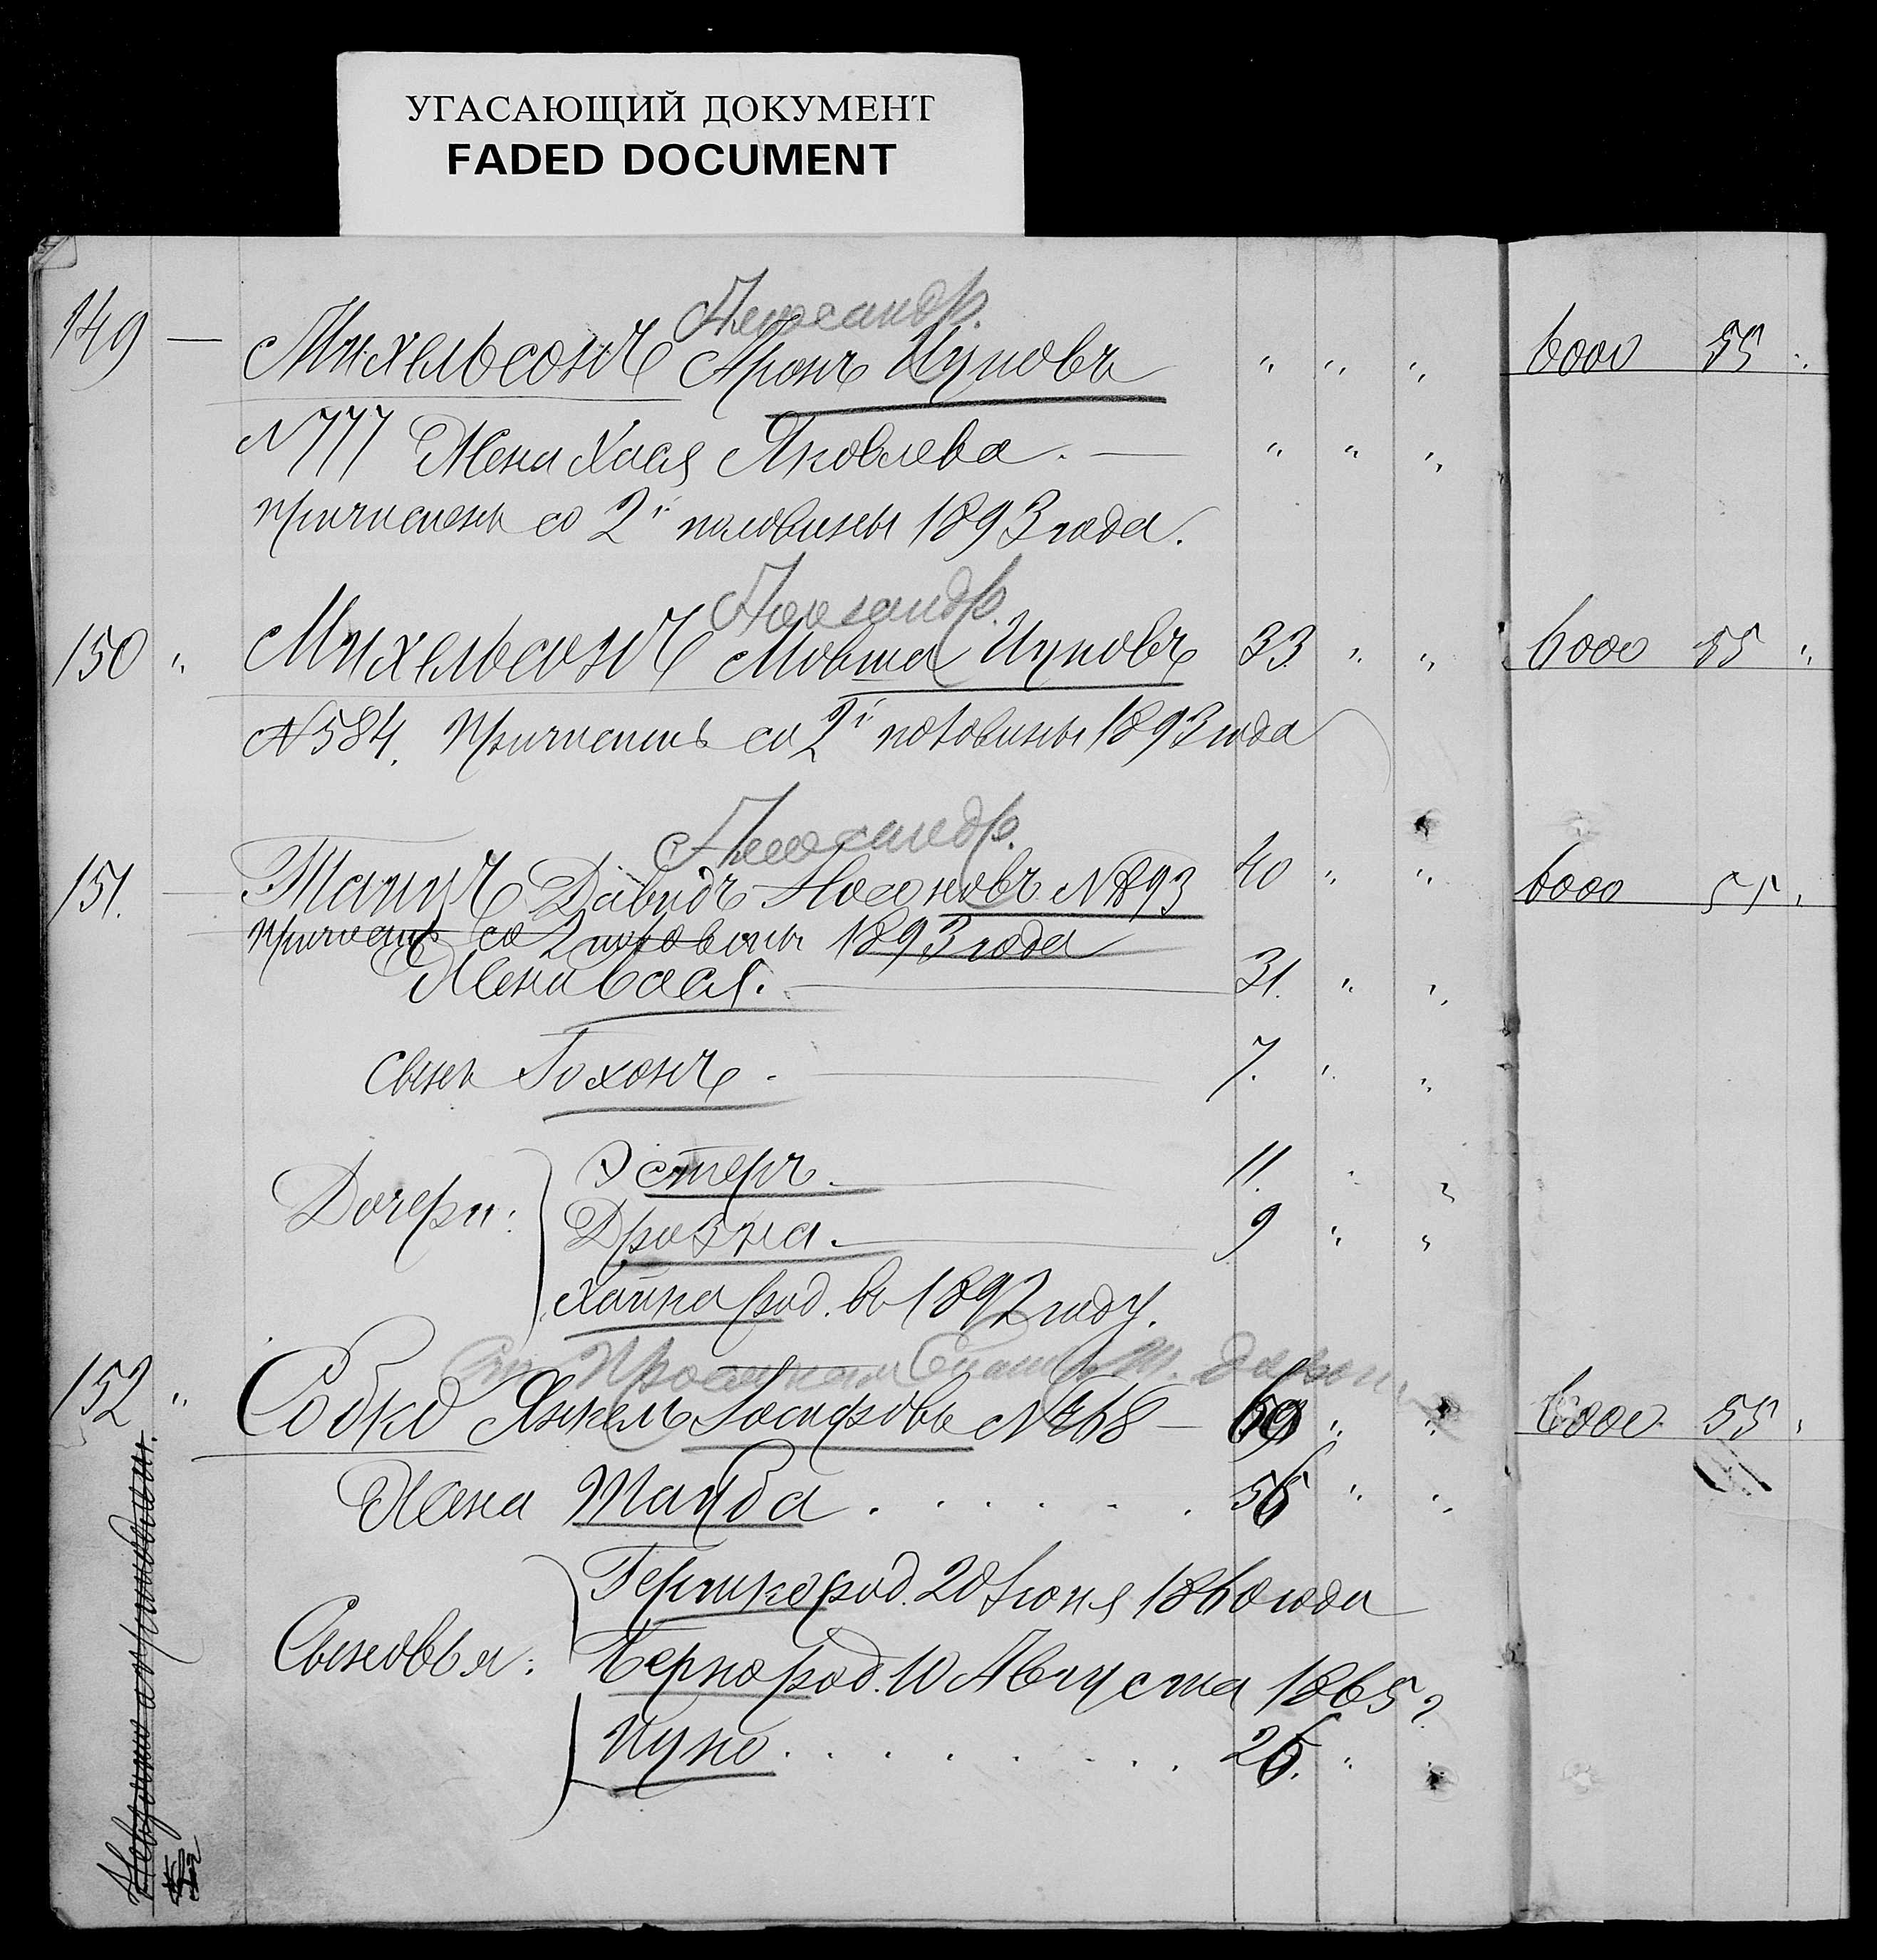 УГАСАЮЩИЙ ДОКУМЕНТ
FADED DOCUMENT
Александр.
149 — Михельсонъ Аронъ Ицковъ " " " 6000 55 "
№ 777 Жена Хася Яковлева. — " " "
причисленъ со 2й половины 1893 года.
Александр.
150 " Михельсонъ Мовша Ицковъ 33 " " 6000 55 "
№ 584. Причисленъ со 2й половины 1893 года
Александр.
151. — Давидъ Носоновъ № 893 40 " " 6000 55 "
Причисленъ со 2 половины 1893 года
Жена Бася. — 31. " "
сынъ Нохонъ. — 7. " "
Дочери: Эстеръ. — 11. " "
Дрозна. — 9 " "
Хайка род. въ 1892 году.
152 " Собко Янкель Іосифовъ № 468 — 69 " " 6000 55 "
Жена Тауба . . . . . . 56 " "
Сыновья: Гершко род. 20 Іюня 1860 года
Берко род. 10 Августа 1865 г.
Ицко . . . . . . . . . 26. " "